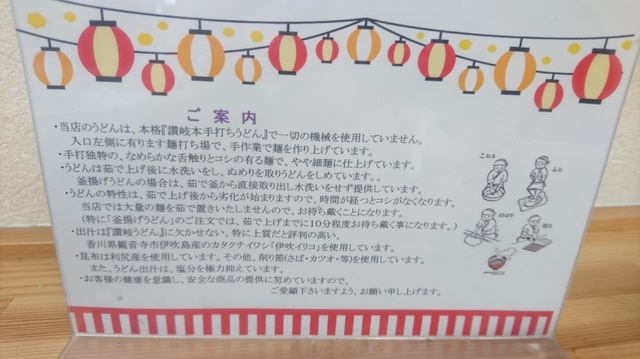 ご 案 内
・当店のうどんは、本格『讃岐本手打ちうどん』で一切の機械を使用していません。
入口左側に有ります麺打ち場で、手作業で麺を作り上げています。
・手打独特の、なめらかな舌触りとコシの有る麺で、やや細麺に仕上げています。
・うどんは茹で上げ後に水洗いをし、ぬめりを取りうどんをしめています。。
釜揚げうどんの場合は、茹で釜から直接取り出し水洗いをせず提供しています。
・うどんの特性は、茹で上げ後から劣化が始まりますので、時間が経つとコシがなくなります。
当店では大量の麺を茹で置きいたしませんので、お待ち戴くことになります。
(特に「釜揚げうどん」のご注文では、茹で上げまでに10分程度お待ち戴く事になります。)
・出汁は『讃岐うどん』に欠かせない、特に上質だと評判の高い、
香川県観音寺市伊吹島産のカタクチイワシ「伊吹イリコ」を使用しています。
・昆布は利尻産を使用しています。その他、削り節(さば・カツオ・等)を使用しています。
また、うどん出汁は、塩分を極力抑えています。
・お客様の健康を意識し、安全な商品の提供に努めていますので、
ご愛顧下さいますよう、お願い申し上げます。
こねる
ふむ
のばす
切る